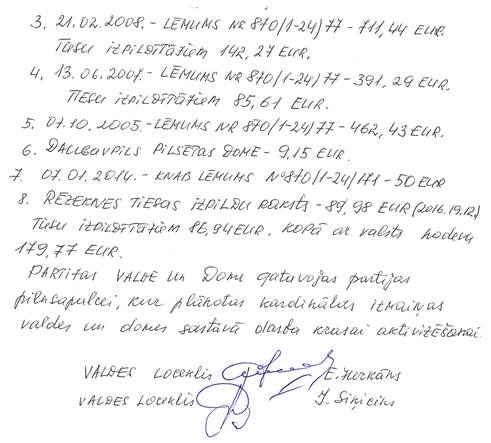 3. 21.02.2008. - LĒMUMS NR 870/1-24/77 - 711,44 EUR.
TIESU IZPILDĪTĀJIEM 142,27 EUR.
4. 13.06.2007. - LĒMUMS NR 870/1-24/77 - 391,29 EUR.
TIESU IZPILDĪTĀJIEM 85,61 EUR.
5. 07.10.2005. - LĒMUMS NR 870/1-24/77 - 462,43 EUR.
6. DAUGAVPILS PILSĒTAS DOME - 9,15 EUR.
7. 07.01.2014. - KNAB LĒMUMS Nº 870/1-24/171 - 50 EUR
8. RĒZEKNES TIESAS IZPILDU RAKSTS - 89,98 EUR (2016.19.12)
TIESU IZPILDĪTĀJIEM 86,94 EUR. KOPĀ AR valsts nodevu
179,77 EUR.
PARTIJAS VALDE un Dome gatavojas partijas
pilnsapulcei, kur plānotas kardinālas izmaiņas
valdes un domes sastāvā darba krasai aktivizēšanai.
VALDES Loceklis E. Jurkāns
VALDES Loceklis J. Siņicins